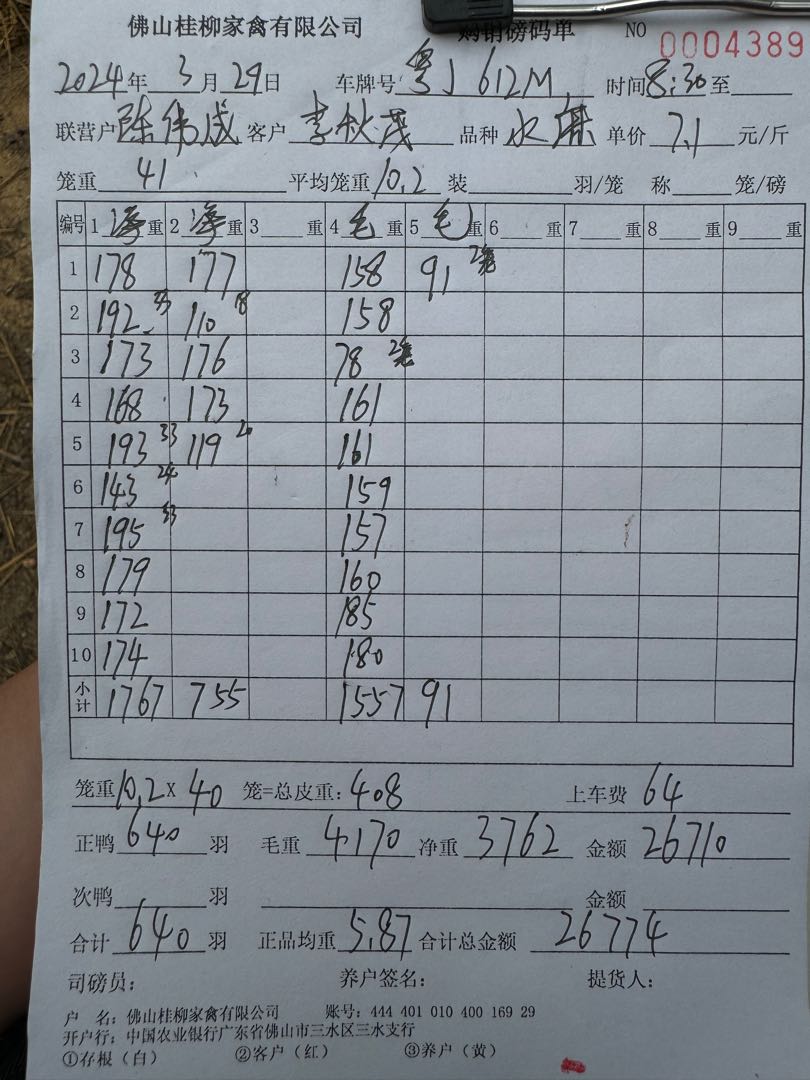 佛山桂柳家禽有限公司 购销磅码单 NO 0004389
2024年 3月 29日 车牌号 粤J 612M 时间 8:30 至
联营户 陈伟成 客户 李秋茂 品种 水麻 单价 7.1 元/斤
笼重 41 平均笼重 10.2 装 羽/笼 称 笼/磅
编号 1 海 重 2 海 重 3 重 4 毛 重 5 毛 重 6 重 7 重 8 重 9 重
1 178 177 158 91 2笼
2 192 33 110 18 158
3 173 176 78 2笼
4 168 173 161
5 193 33 119 20 161
6 143 24 159
7 195 33 157
8 179 160
9 172 185
10 174 180
小计 1767 755 1557 91
笼重 10.2 X 40 笼=总皮重: 408 上车费 64
正鸭 640 羽 毛重 4170 净重 3762 金额 26710
次鸭 羽 金额
合计 640 羽 正品均重 5.87 合计总金额 26774
司磅员: 养户签名: 提货人:
户 名: 佛山桂柳家禽有限公司 账号: 444 401 010 400 169 29
开户行: 中国农业银行广东省佛山市三水区三水支行
①存根(白) ②客户(红) ③养户(黄)